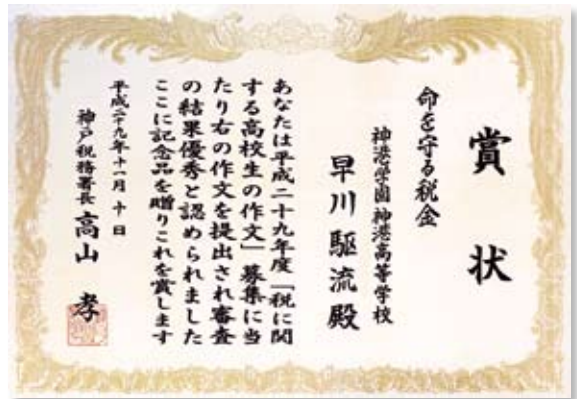 賞状
命を守る税金
神港学園神港高等学校
早川駆流殿
あなたは平成二十九年度「税に関
する高校生の作文」募集に当
たり右の作文を提出され審査
の結果優秀と認められました
ここに記念品を贈りこれを賞します
平成二十九年十一月十日
神戸税務署長 高山孝